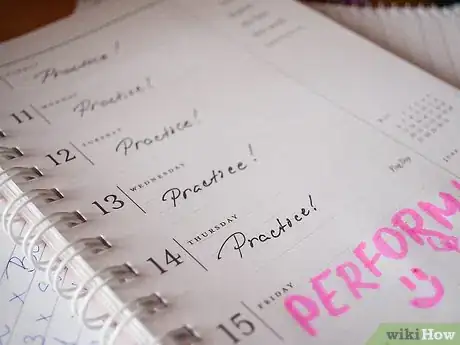 SUNDAY
Practice!
11
MONDAY
Practice!
12
TUESDAY
Practice!
13
WEDNESDAY
Practice!
14
THURSDAY
Practice!
15
FRIDAY
PERFORM
Flag Day
wikiHow